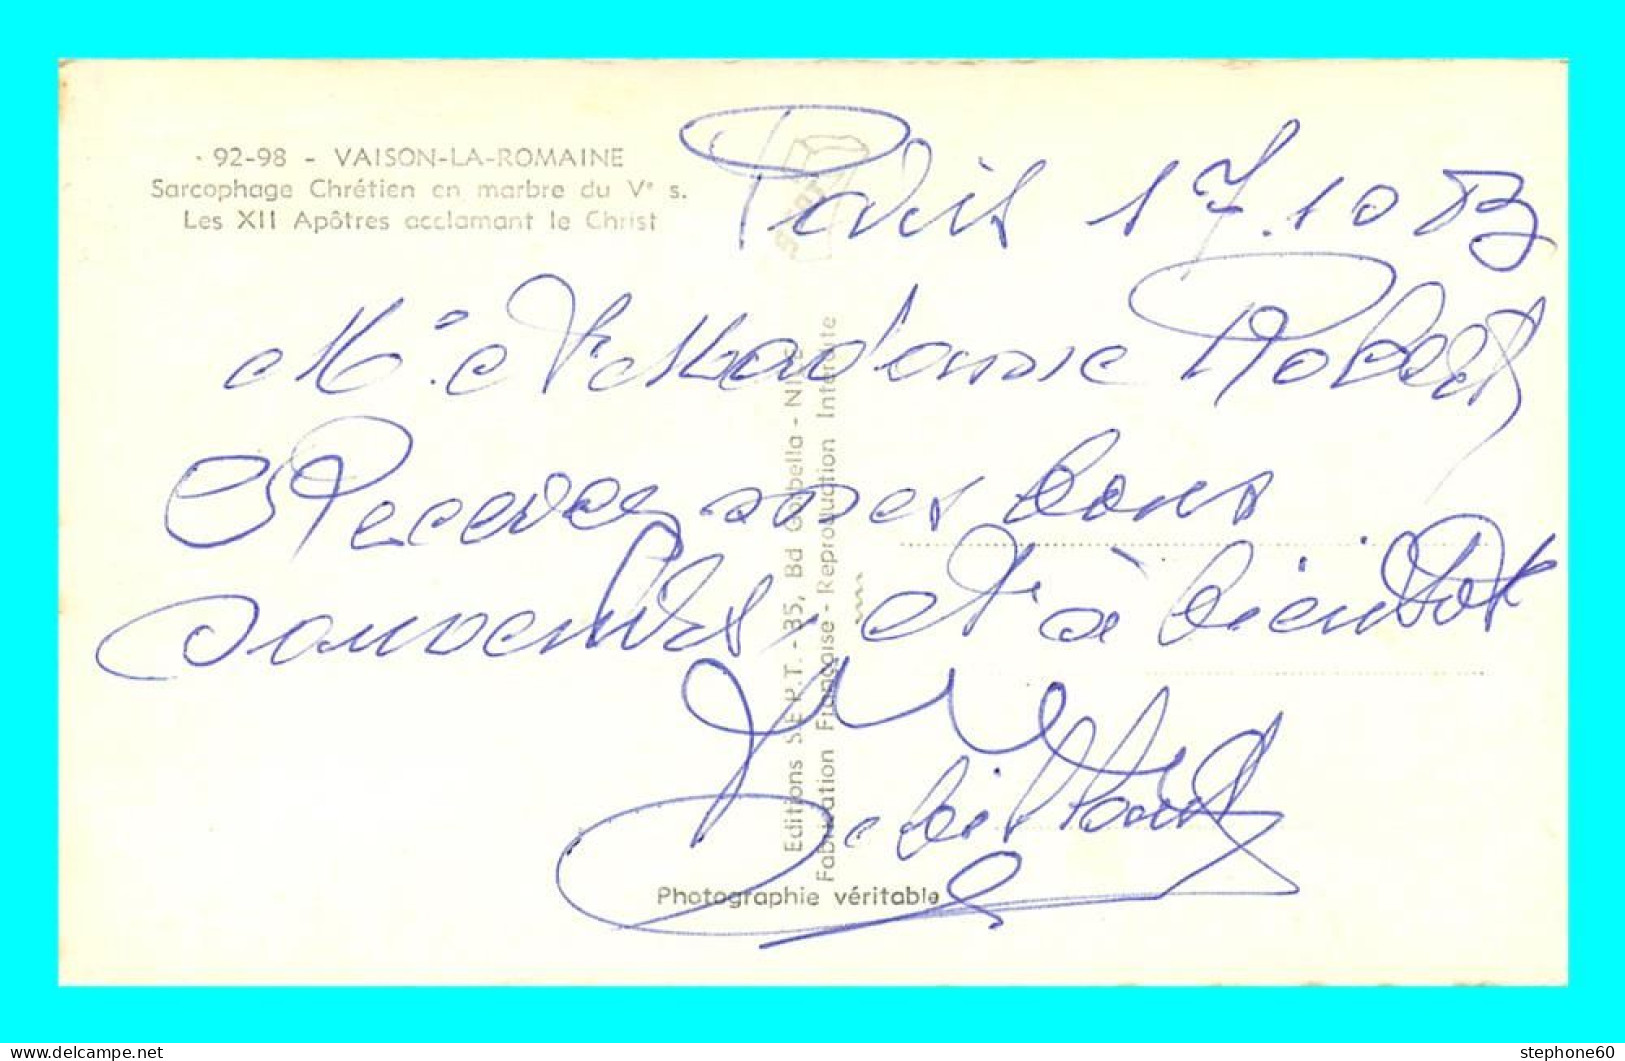 92-98 - VAISON-LA-ROMAINE
Sarcophage Chrétien en marbre du Ve s.
Les XII Apôtres acclamant le Christ
Paris 17.10 83
Mr et Madame Robert
Recevez mes bons
souvenirs, et à bientot
Editions S.E.P.T. - 35, Bd Gorbella - NICE
Fabrication Française - Reproduction Interdite
Photographie véritable
www.delcampe.net
stephone60